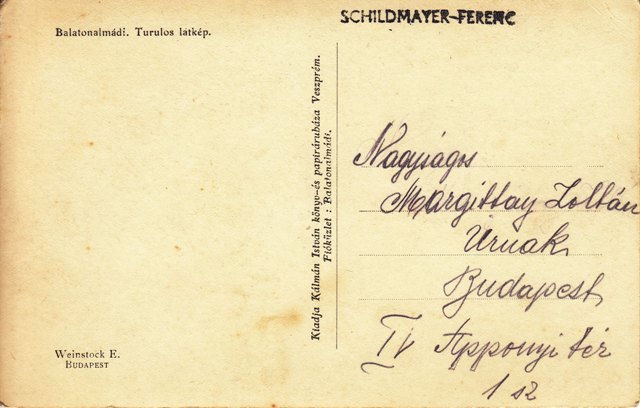 SCHILDMAYER-FERENC
Balatonalmádi. Turulos látkép.
Kiadja Kálmán István könyv-és papírárubáza Veszprém.
Fióküzlet : Balatonalmádi.
Nagyságos
Margittay Zoltán
Úrnak
Budapest
IV Apponyi tér
1 sz
Weinstock E.
BUDAPEST